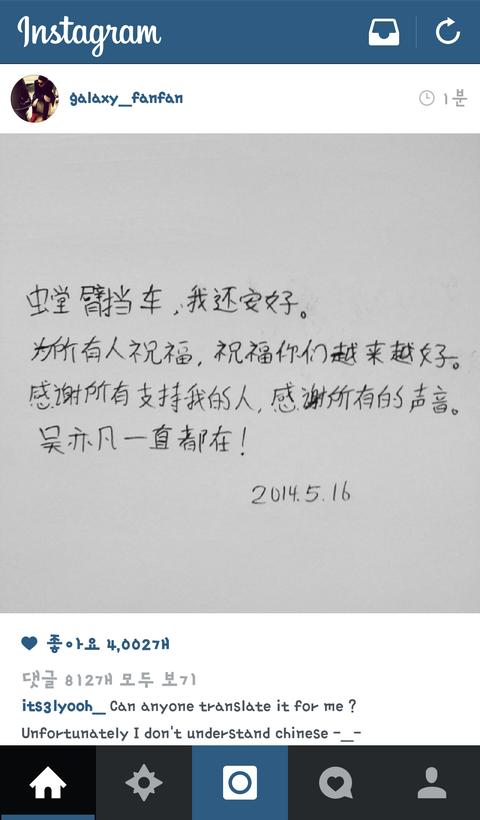 Instagram
galaxy__fanfan
1분
螳臂挡车，我还安好。
为所有人祝福，祝福你们越来越好。
感谢所有支持我的人，感谢所有的声音。
吴亦凡一直都在！
2014.5.16
좋아요 4,002개
댓글 812개 모두 보기
its3lyooh__ Can anyone translate it for me ?
Unfortunately I don't understand chinese -__-